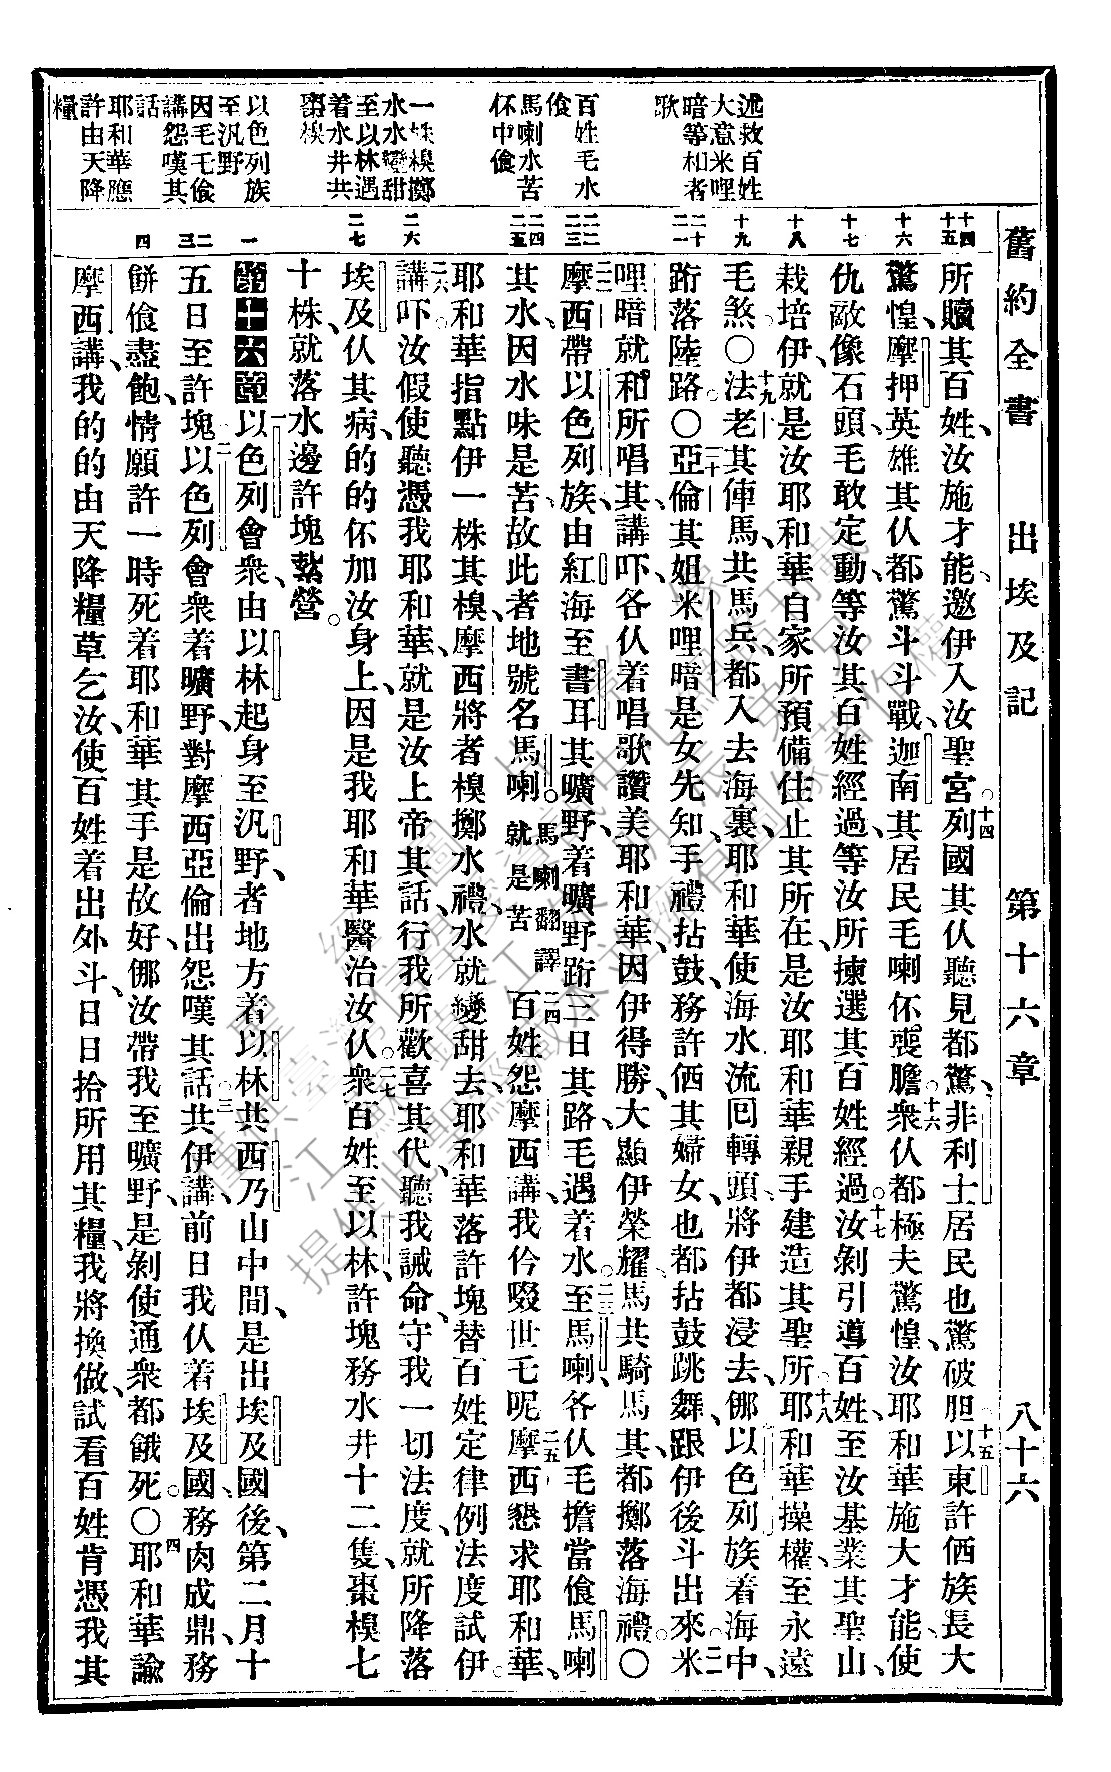 舊約全書　出埃及記　第十六章　八十六
述救百姓
大意米哩
暗等和者
歌
百姓毛水
飧
馬喇水苦
伓中飧
一株槺擲
水水變甜
至以林遇
着水井共
棗槺
以色列族
至汎野
因毛乇飧
講怨嘆其
話
耶和華應
許由天降
糧
十四
十五
十六
十七
十八
十九
二十
二一
二二
二三
二四
二五
二六
二七
一
二
三
四
所贖其百姓、汝施才能、邀伊入汝聖宮。十四列國其仫聽見都驚、非利士居民也驚破胆、十五以東許俩族長大
驚惶、摩押英雄其仫都驚斗斗戰、迦南其居民毛喇伓喪膽。十六衆仫都極夫驚惶、汝耶和華施大才能、使
仇敵像石頭、毛敢定動、等汝其百姓經過、等汝所揀選其百姓經過。十七汝剝引導百姓、至汝基業其聖山、
栽培伊、就是汝耶和華自家所預備住止其所在、是汝耶和華親手建造其聖所。十八耶和華操權、至永遠
毛煞。〇十九法老其俥馬、共馬兵、都入去海裏、耶和華使海水流囘轉頭、將伊都浸去、𠆧以色列族着海中、
跲落陸路。〇二十亞倫其姐米哩暗是女先知、手禮拈鼓、務許俩其婦女、也都拈鼓跳舞、跟伊後斗出來。二一米
哩暗就和所唱其、講吓、各仫着唱歌讚美耶和華、因伊得勝、大顯伊榮耀、馬共騎馬其、都擲落海禮。〇
二二摩西帶以色列族、由紅海至書耳其曠野、着曠野跲三日其路、毛遇着水。二三至馬喇、各仫毛擔當飧馬喇
其水、因水味是苦、故此者地號名馬喇。馬喇翻譯就是苦二四百姓怨摩西講、我仱啜世乇呢。二五摩西懇求耶和華、
耶和華指點伊一株其槺、摩西將者槺擲水禮、水就變甜去、耶和華落許塊替百姓定律例法度試伊。
二六講吓、汝假使聽憑我耶和華、就是汝上帝其話、行我所歡喜其代、聽我誡命、守我一切法度、就所降落
埃及仫其病、的的伓加汝身上、因是我耶和華醫治汝仫。二七衆百姓至以林、許塊務水井十二隻、棗槺七
十株、就落水邊許塊紮營。
第十六章　一以色列會衆、由以林起身至汎野、者地方着以林共西乃山中間、是出埃及國後、第二月十
五日至許塊、二以色列會衆着曠野、對摩西亞倫出怨嘆其話。三共伊講、前日我仫着埃及國、務肉成鼎、務
餅飧盡飽、情願許一時死着耶和華其手是故好、𠆧汝帶我至曠野、是剝使通衆都餓死。〇四耶和華諭
摩西講、我的的由天降糧草乞汝、使百姓着出外斗、日日拾所用其糧、我將換做、試看百姓肯憑我其